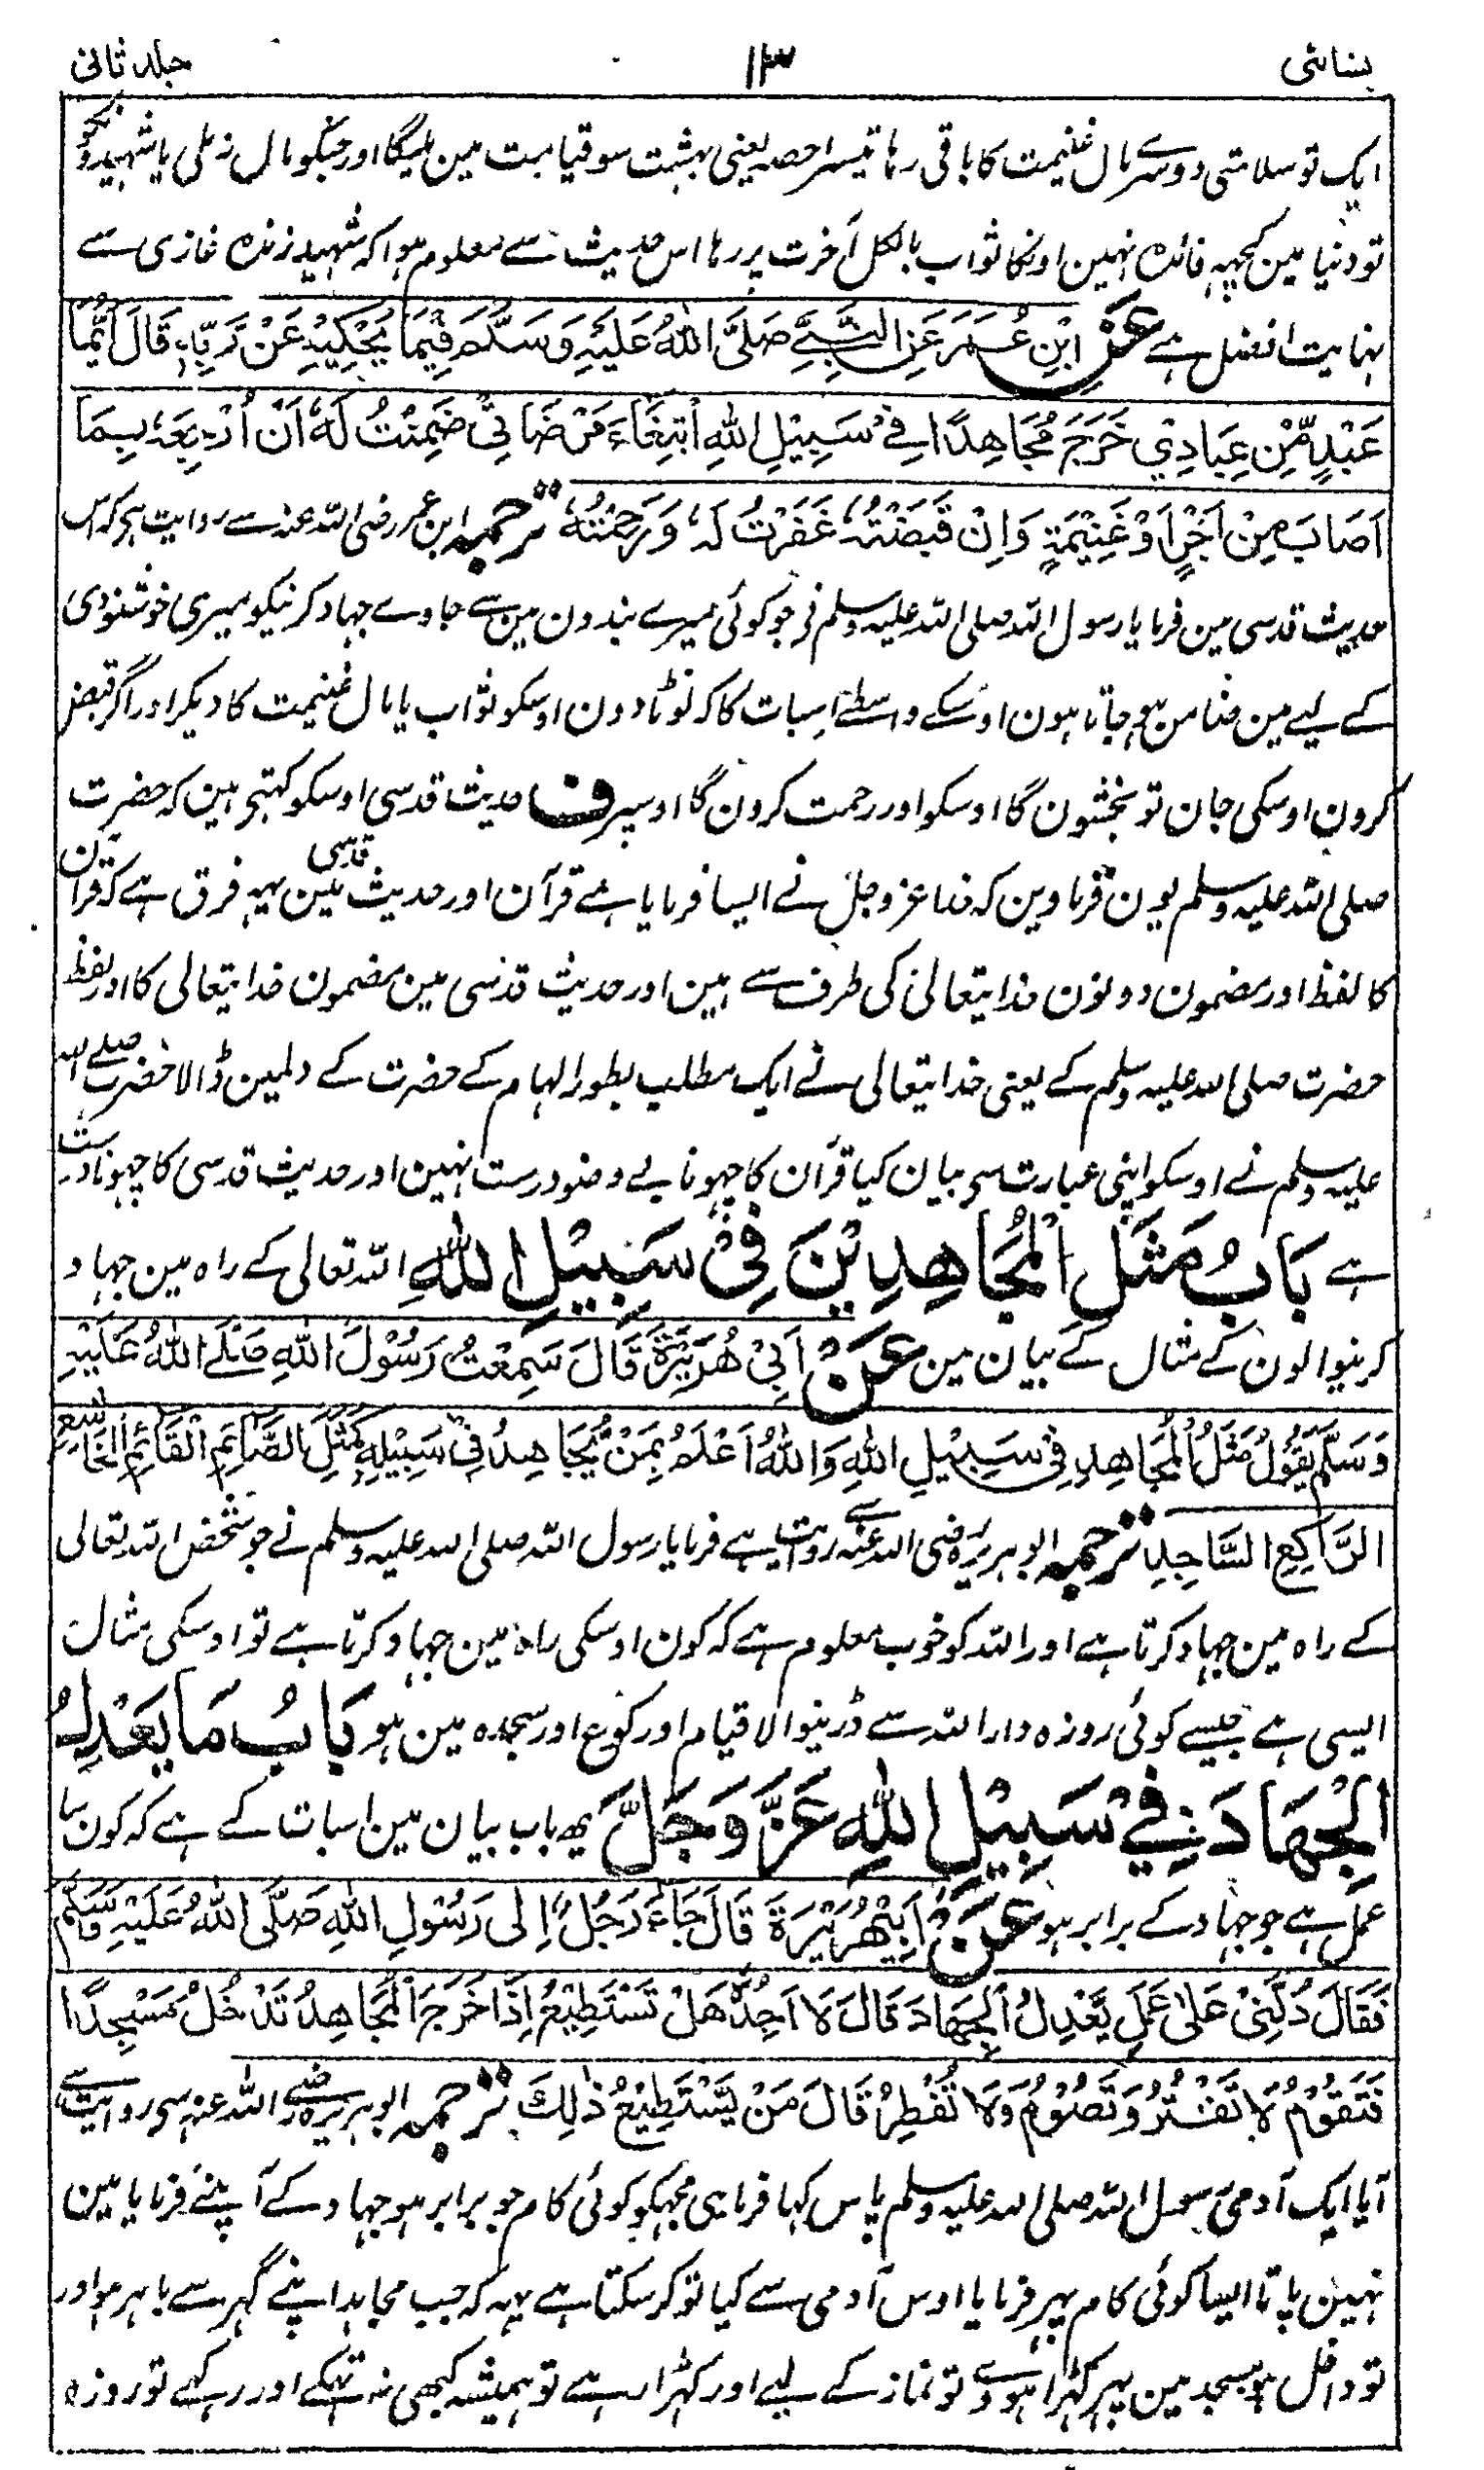 نسائی ۱۳ جلد ثانی
ایک تو سلامتی دوسرے مال غنیمت کا باقی رہا تیسرا حصہ یعنی بہشت سو قیامت مین ملیگا اور جنکو مال نہ ملی یا شہید ہو
تو دنیا مین کچہہ فائدہ نہین اونکا ثواب بالکل آخرت پر رہا اس حدیث سے معلوم ہوا کہ شہید زندہ غازی سے
نہایت افضل ہے عَنِ ابْنِ عُمَرَ عَنِ النَّبِيِّ صَلَّى اللّٰهُ عَلَيْهِ وَسَلَّمَ فِيْمَا يَحْكِيْهِ عَنْ رَبِّهٖ قَالَ اَيُّمَا
عَبْدٍ مِّنْ عِبَادِيْ خَرَجَ مُجَاهِدًا فِيْ سَبِيْلِ اللّٰهِ ابْتِغَاءَ مَرْضَاتِيْ ضَمِنْتُ لَهٗ اَنْ اُرْجِعَهٗ بِمَا
اَصَابَ مِنْ اَجْرٍ اَوْ غَنِيْمَةٍ وَاِنْ قَبَضْتُهٗ غَفَرْتُ لَهٗ وَرَحِمْتُهٗ ترجمہ ابن عمر رضی اللہ عنہ سے روایت ہی کہ اس
حدیث قدسی مین فرمایا رسول اللہ صلی اللہ علیہ وسلم نی جو کوئی میرے بندون مین سے جاوے جہاد کرنیکو میری خوشنودی
کے لیے مین ضامن ہو جاتا ہون اوسکے واسطے اسبات کا کہ لوٹا دون اوسکو ثواب یا مال غنیمت کا دیکر اور اگر قبض
کرون اوسکی جان تو بخشون گا اوسکو اور رحمت کرون گا اوسپر ف حدیث قدسی اوسکو کہتی ہین کہ حضرت
صلی اللہ علیہ وسلم یون فرماوین کہ خدا عز وجل نے ایسا فرمایا ہے قرآن اور حدیث قدسی مین یہہ فرق ہے کہ قرآن
کا لفظ اور مضمون دونون خدایتعالی کی طرف سے ہین اور حدیث قدسی مین مضمون خدایتعالی کا اور لفظ
حضرت صلی اللہ علیہ وسلم کے یعنی خدایتعالی نے ایک مطلب بطور الہام کے حضرت کے دلمین ڈالا حضرت صلے اللہ
علیہ وسلم نے اوسکو اپنی عبارت سی بیان کیا قرآن کا چہونا بے وضو درست نہین اور حدیث قدسی کا چہونا درست
ہے بَابُ مَثَلِ الْمُجَاهِدِيْنَ فِيْ سَبِيْلِ اللّٰهِ اللہ تعالی کے راہ مین جہاد
کرنیوالون کے مثال کے بیان مین عَنْ اَبِيْ هُرَيْرَةَ قَالَ سَمِعْتُ رَسُوْلَ اللّٰهِ صَلَّے اللّٰهُ عَلَيْهِ
وَسَلَّمَ يَقُوْلُ مَثَلُ الْمُجَاهِدِ فِيْ سَبِيْلِ اللّٰهِ وَاللّٰهُ اَعْلَمُ بِمَنْ يُّجَاهِدُ فِيْ سَبِيْلِهٖ كَمَثَلِ الصَّائِمِ الْقَائِمِ الْخَاشِعِ
الرَّاكِعِ السَّاجِدِ ترجمہ ابوہریرہ رضی اللہ عنہ سے روایت ہے فرمایا رسول اللہ صلی اللہ علیہ وسلم نے جو شخص اللہ تعالی
کے راہ مین جہاد کرتا ہے اور اللہ کو خوب معلوم ہے کہ کون اوسکی راہ مین جہاد کرتا ہے تو اوسکی مثال
ایسی ہے جیسے کوئی روزہ دار اللہ سے ڈرنیوالا قیام اور رکوع اور سجدہ مین ہو بَابُ مَا يَعْدِلُ
الْجِهَادَ فِيْ سَبِيْلِ اللّٰهِ عَزَّ وَجَلَّ یہ باب بیان مین اسبات کے ہے کہ کون سا
عمل ہے جو جہاد کے برابر ہو عَنْ اَبِيْ هُرَيْرَةَ قَالَ جَاءَ رَجُلٌ اِلٰى رَسُوْلِ اللّٰهِ صَلَّى اللّٰهُ عَلَيْهِ وَسَلَّمَ
فَقَالَ دُلَّنِيْ عَلٰى عَمَلٍ يَّعْدِلُ الْجِهَادَ قَالَ لَا اَجِدُهٗ هَلْ تَسْتَطِيْعُ اِذَا خَرَجَ الْمُجَاهِدُ تَدْخُلُ مَسْجِدًا
فَتَقُوْمُ لَا تَفْتُرُ وَتَصُوْمُ وَلَا تُفْطِرُ قَالَ مَنْ يَّسْتَطِيْعُ ذٰلِكَ ترجمہ ابوہریرہ رضے اللہ عنہ سی روایت ہے
آیا ایک آدمی رسول اللہ صلی اللہ علیہ وسلم پاس کہا فرمای مجہکو کوئی کام جو برابر ہو جہاد کے آپنے فرمایا مین
نہین پاتا ایسا کوئی کام پہر فرمایا اوس آدمی سے کیا تو کر سکتا ہے یہہ کہ جب مجاہد اپنے گہر سے باہر ہو اور
تو داخل ہو مسجد مین پہر کہڑا ہووے تو نماز کے لیے اور کہڑا رہے تو ہمیشہ کبھی نہ تہکے اور رکہے تو روزہ